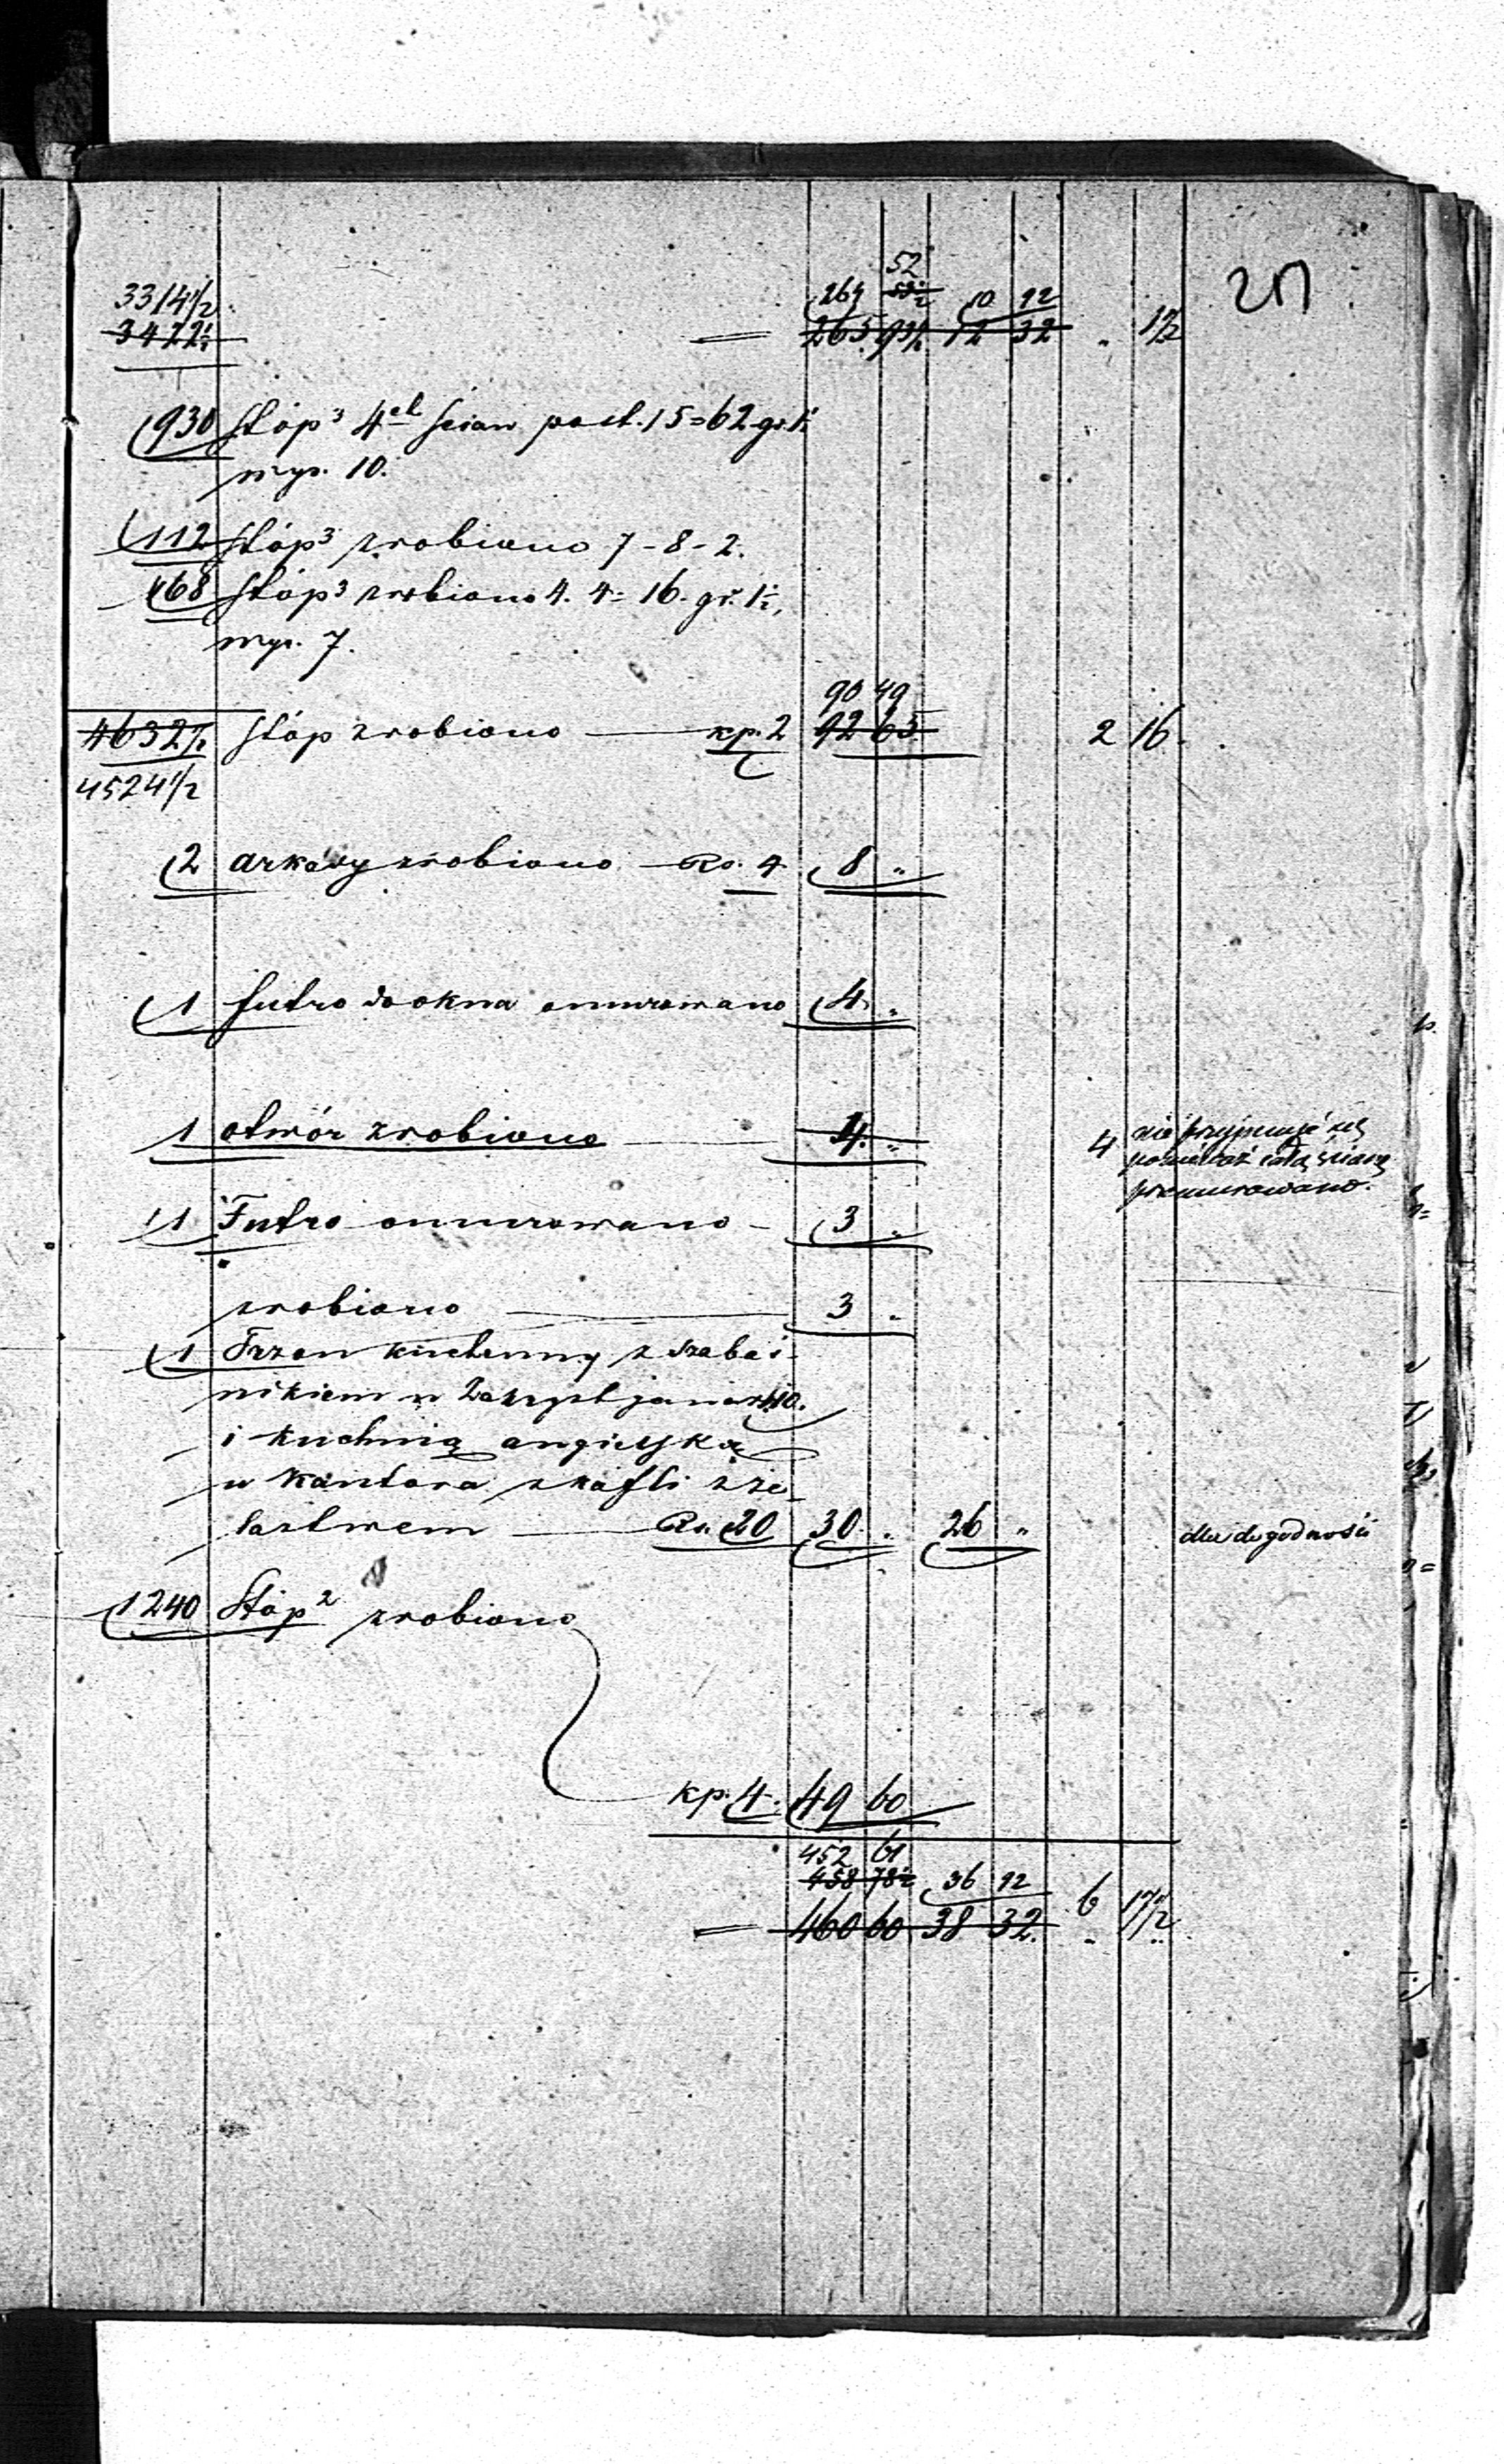 52
3314 1/2 264 53 1/2 10 92
3422 1/2 = 265 93 1/2 12 32 " 1 1/2
930 stóp³ 4ech ścian po st. 15=62 gr. 1½
wys. 10.
112 stóp³ zrobiono 7-8-2.
168 stóp³ zrobiono 4. 4= 16. gr. 1½,
wys. 7.
90 49
4632 1/2 stóp zrobiono — kp. 2 92 65 2 16.
4524 1/2
2 arkady zrobiono — Rs. 4 8 "
1 futro do okna omurowano 4 "
1 otwór zrobiono — 4. " 4 nie przyjmuje się
ponieważ całą ścianę
przemurowano.
1 Futro omurowano — 3 "
zrobiono — 3 "
1 Trzon kuchenny z szabaś-
nikiem w Zakrystjana rs 10.
i kuchnią angielską
u Kantora z kafli z że-
lastwem — Rs. 20 30 " 26 " dla dogodności
1240 Stóp² zrobiono
kp. 4. 49 60
452 61
458 78 1/2 36 92 6 17 1/2
= 460 60 38 32. " "